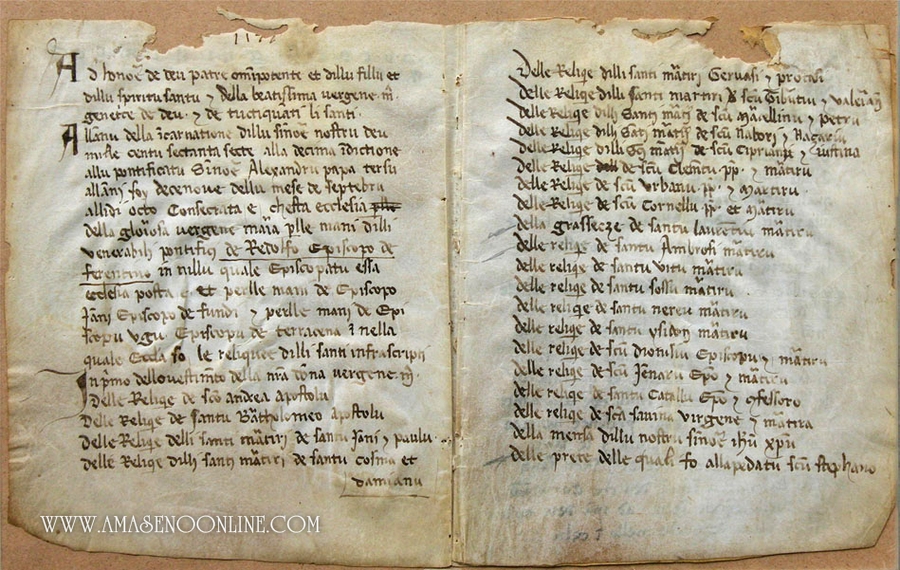 1177
Ad honoē de deu patre om̄ipotente et dillu filiu et
dillu spiritu santu ⁊ della beatissima vergene m̄.
genetce de deu. ⁊ de tuctiquati li santi.
Allanu della īcarnatione dillu sinōe nostru deu
mille centu sectanta secte alla decima īdictione
allu pontificatu Sinōe Alexandru papa tersu
allanj soy decenove dellu mese de septebru
allidi octo Consecrata e chesta ecclesia
della glōiosa vergene maīa plle mani dilli
venerabilj pontifici de Redolfo Episcopo de
ferentino in nullu quale Episcopatu essa
ecclesia posta e et perlle mani de Episcopo
Jāni Episcopo de fundi ⁊ perlle mani de Epi
scopu vgu Episcopu de terracena ī nella
quale Eccl̄a so le reliquee dilli santi infrascripti
In p̄mo dello vestimēto della nr̄a dōna vergene m̄.
Delle Reliqe de sc̄o andrea apostolu
Delle Reliqe de santu Bātholomeo apostolu
Delle Reliqe delli santi mātiri de santu Jāni ⁊ paulu.
delle Reliqe dilli santi mātiri de santu cosma et
damianu
Delle Reliqe dilli santi mātirj Gervasi ⁊ protasi
delle Reliqe dillu santi martiri de sc̄u Tibutiu ⁊ valeriāu
delle Reliqe dillj Santj mātj de sc̄u mārellinu ⁊ petru
delle Reliqe dillj Sātj mātirj de sc̄u Naborj ⁊ Nagariu
delle Reliqe dilli Sc̄j mātirj de sc̄u Ciprianu ⁊ iustina
delle Reliqe de sc̄u Clemētu pp̄. ⁊ mātiru
delle Reliqe de sc̄u vrbanu pp̄. ⁊ martiru.
delle Reliqe de sc̄u Cornellu pp̄. et mātiru
della grassecze de santu laurentiu mātiru
delle reliqe de santu Ambrosi mātiru
delle reliqe de santu vitu mātiru
delle reliqe de santu sossiu mātiru.
delle reliqe de santu nereu mātiru
delle reliqe de santu ysidorj mātiru
delle reliqe de sc̄u dionisiu Episcopu ⁊ mātiru
delle reliqe de sc̄u Jēnaru Ep̄o ⁊ mātiru
delle reliqe de santu Catallu Ep̄o ⁊ 9fessoro
delle reliqe de sc̄a savina virgene ⁊ mātira
della mensa dillu nostru sinōe ih̄u xp̄u
delle prete delle quali fo allapedatu sc̄u stephano
WWW.AMASENOONLINE.COM